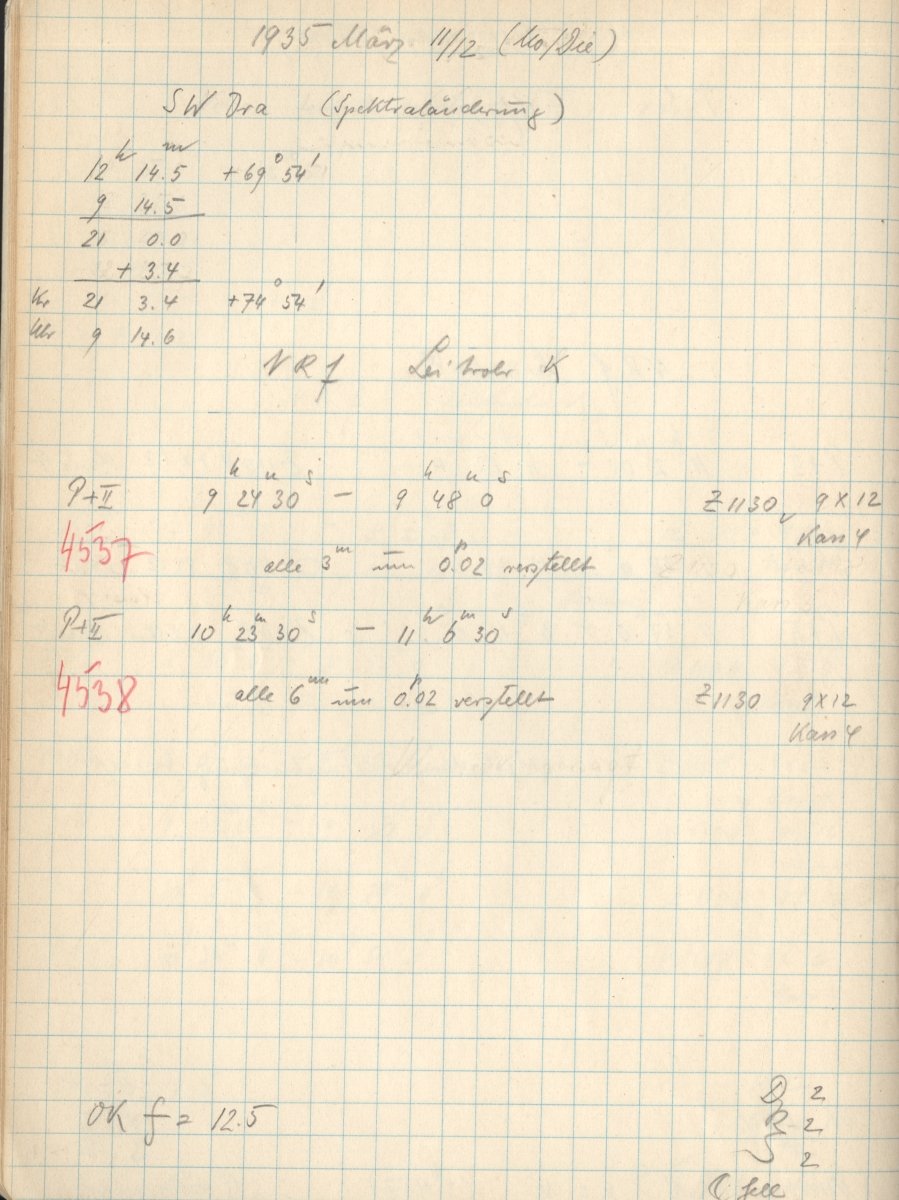 1935 März 11/12 (Mo/Die)
SW Dra (Spektraländerung)
12h 14.5m +69° 54'
9 14.5
21 0.0
+ 3.4
Kr 21 3.4 +74° 54'
Uhr 9 14.6
Leitrohr K
P+II 9h 24m 30s — 9h 48m 0s Z1130, 9x12
4537 Kass 4
alle 3m um 0p.02 verstellt
P+II 10h 23m 30s — 11h 6m 30s
4538 alle 6m um 0p.02 verstellt Z1130 9x12
Kass 4
OK f = 12.5
D 2
B 2
2
hell